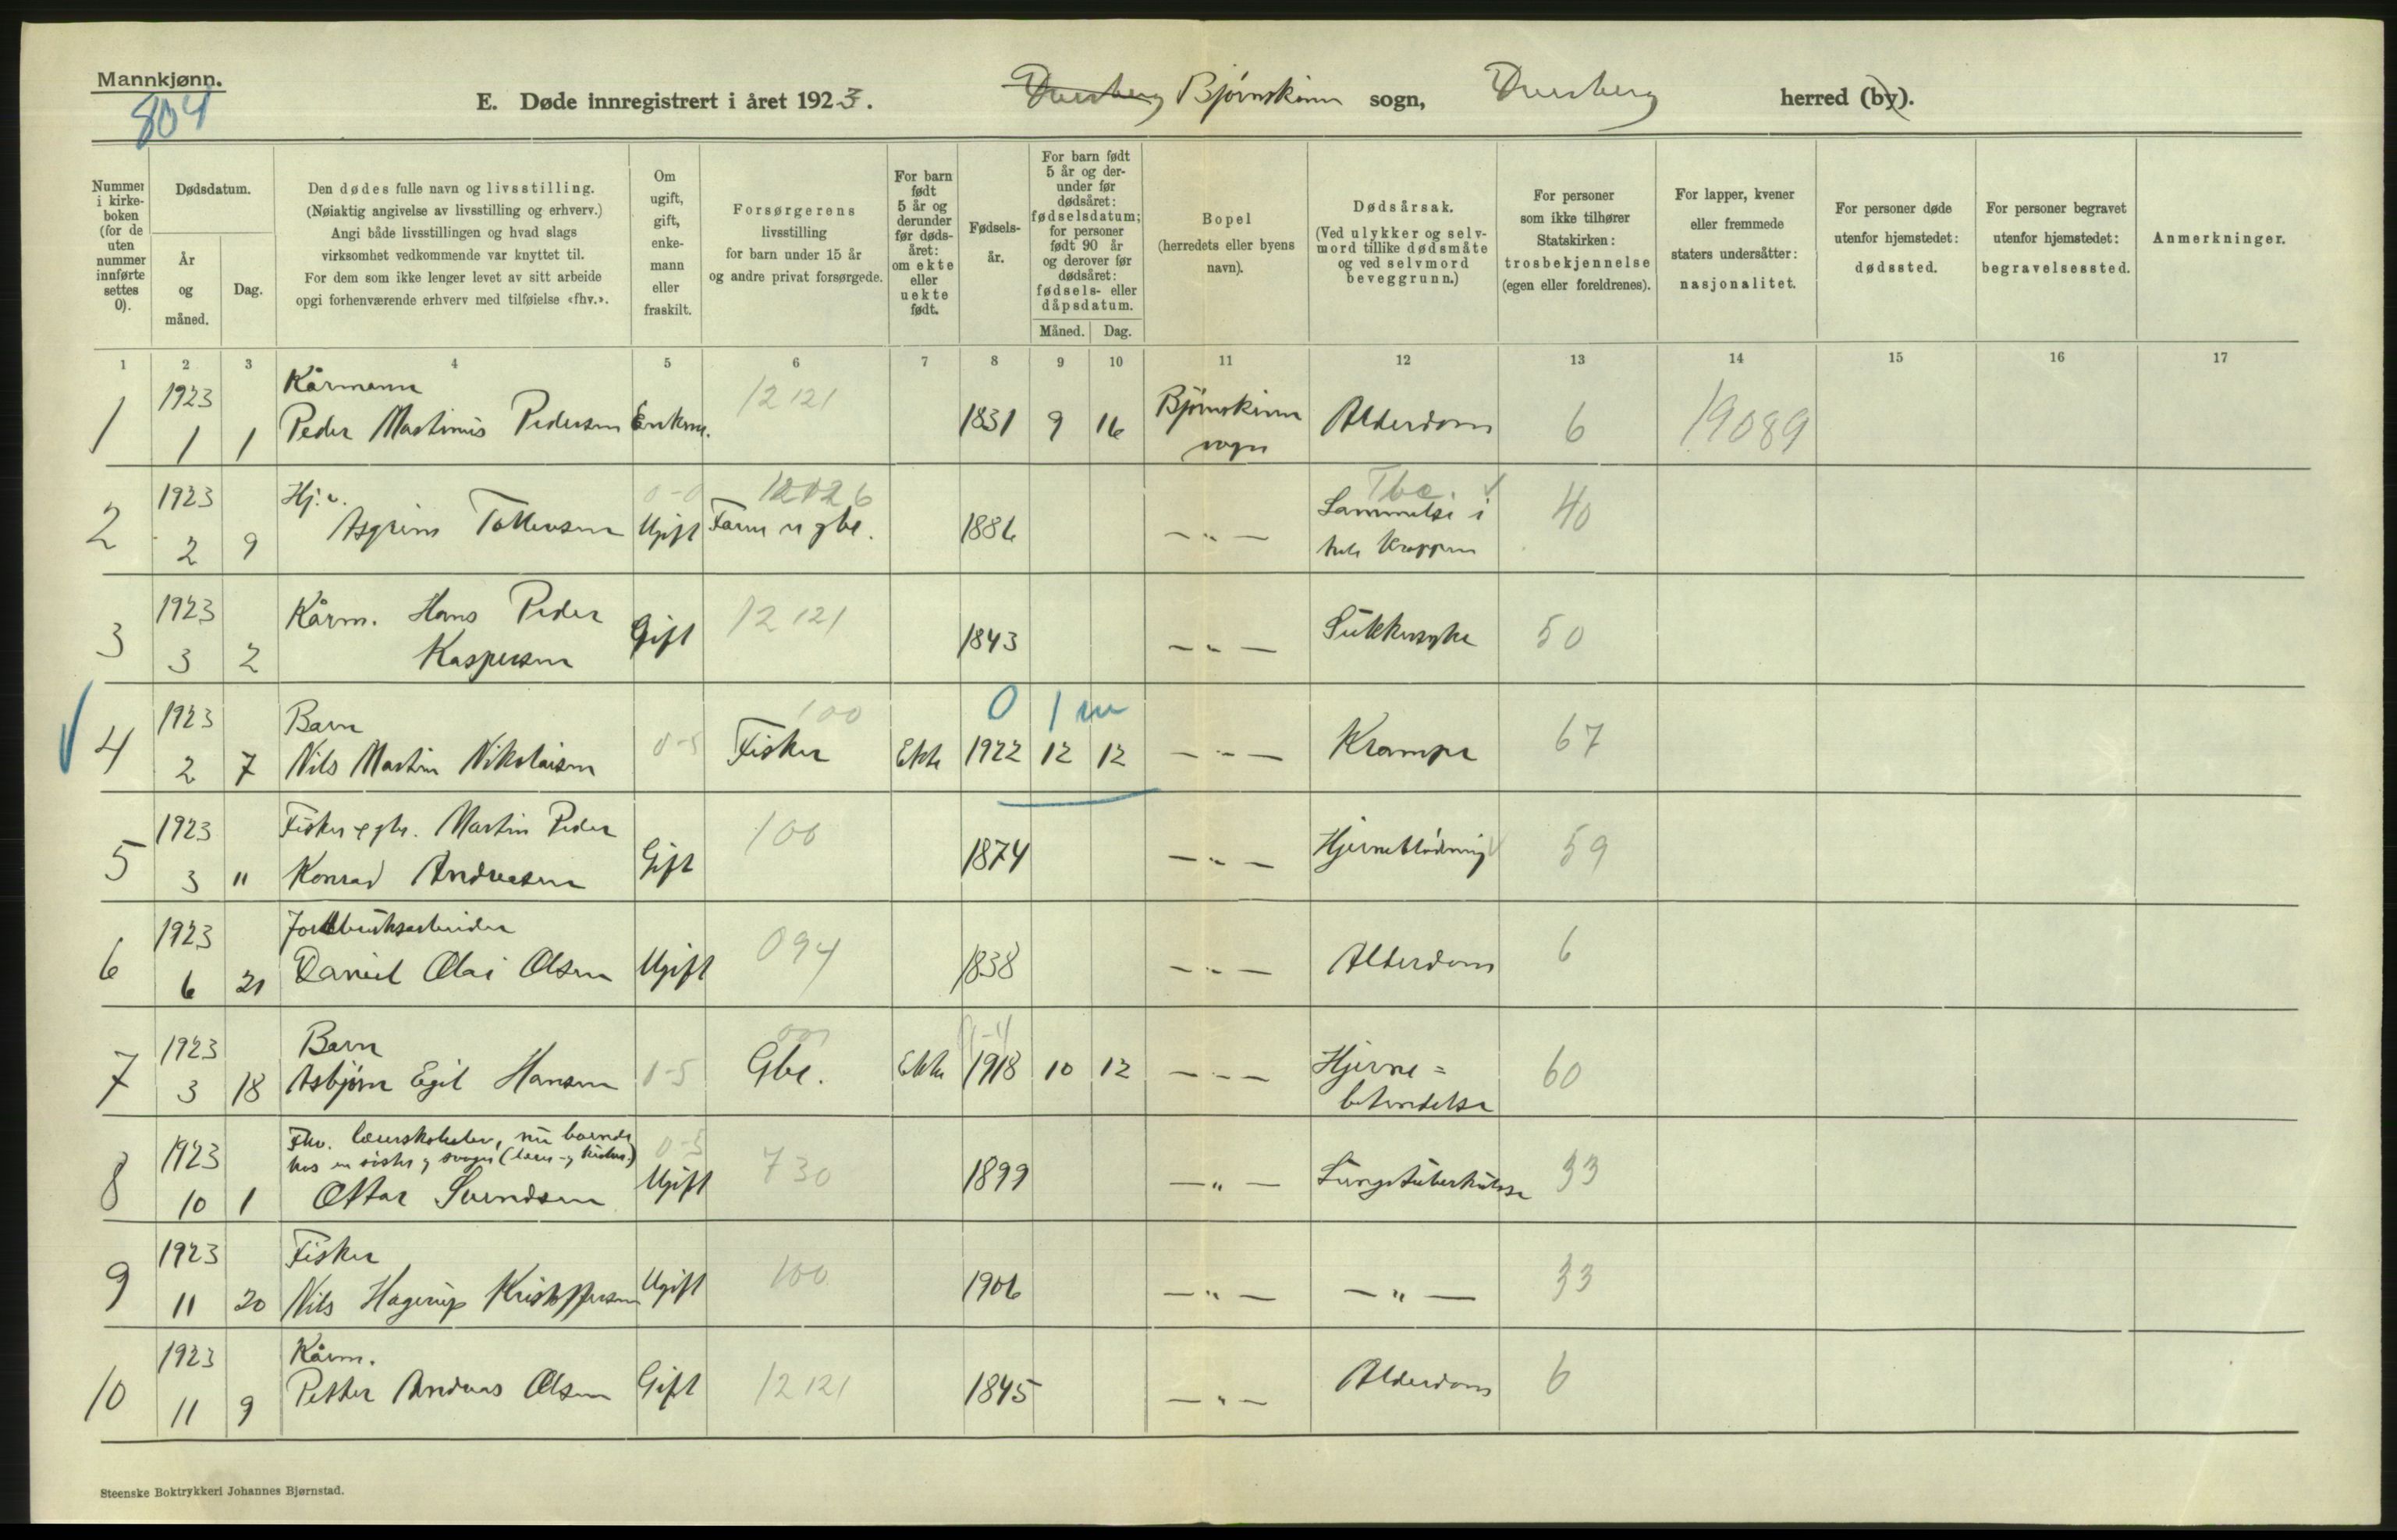 Mannkjønn.
804
E. Døde innregistrert i året 1923.
Dverberg Bjørnskinn sogn, Dverberg herred (by).
Nummer i kirke-boken (for de uten nummer innførte settes 0).
Dødsdatum.
År og måned.
Dag.
Den dødes fulle navn og livsstilling.
(Nøiaktig angivelse av livsstilling og erhverv.)
Angi både livsstillingen og hvad slags
virksomhet vedkommende var knyttet til.
For dem som ikke lenger levet av sitt arbeide
opgi forhenværende erhverv med tilføielse «fhv.».
Om ugift, gift, enke-mann eller fraskilt.
Forsørgerens
livsstilling
for barn under 15 år
og andre privat forsørgede.
For barn født 5 år og derunder før døds-året: om ekte eller uekte født.
Fødsels-år.
For barn født 5 år og der-under før dødsåret: fødselsdatum; for personer født 90 år og derover før dødsåret: fødsels- eller dåpsdatum.
Måned. Dag.
Bopel
(herredets eller byens
navn).
Dødsårsak.
(Ved ulykker og selv-
mord tillike dødsmåte
og ved selvmord
beveggrunn.)
For personer
som ikke tilhører
Statskirken:
trosbekjennelse
(egen eller foreldrenes).
For lapper, kvener
eller fremmede
staters undersåtter:
nasjonalitet.
For personer døde
utenfor hjemstedet:
dødssted.
For personer begravet
utenfor hjemstedet:
begravelsessted.
Anmerkninger.
1 2 3 4 5 6 7 8 9 10 11 12 13 14 15 16 17
1923 Kårmann 12 121 Bjørnskinn
1 1 1 Peder Martinus Pedersen Enkem. 1831 9 16 sogn Alderdom 6 19089
1923 Hj. v. 0-0 12126 Tbc. Lammelse i
2 2 9 Asgrim Tollevsen Ugift 1886 —"— hele kroppen 40
1923 Kårm. Hans Peder 12 121
3 3 2 Kaspersen Gift 1843 —"— Sukkersyke 50
1923 Barn 100 0 1 m
4 2 7 Nils Martin Nikolaisen 0-5 Fisker Ekte 1922 12 12 —"— Krampe 67
1923 Fisker og gbr. Martin Peder 100
5 3 " Konrad Andreasen Gift 1874 —"— Hjerneblødning 59
1923 Jordbruksarbeider 094
6 6 21 Daniel Olai Olsen Ugift 1838 —"— Alderdom 6
1923 Barn 001 0-4
7 3 18 Asbjørn Egil Hansen 0-5 Gbr. Ekte 1918 10 12 —"— Hjerne= 60
betendelse
Fhv. lærerskoleelev, nu boende 0-5
1923 hos en søster og svoger (lærer- og kirkes.)
8 10 1 Ottar Svendsen Ugift 730 1899 —"— Lungetuberkulose 33
1923 Fisker
9 11 20 Nils Hagerup Kristoffersen Ugift 100 1906 —"— —"— 33
1923 Kårm.
10 11 9 Petter Andreas Olsen Gift 12 121 1845 —"— Alderdom 6
Steenske Boktrykkeri Johannes Bjørnstad.